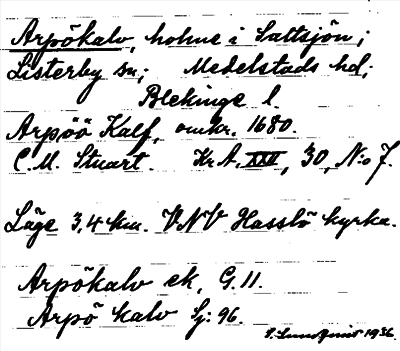 Arpökalv, holme i Saltsjön;
Listerby sn; Medelstads hd;
Blekinge l.
Arpöö Kalf, omkr. 1680.
C. M. Stuart. Kr A. XXV, 30, N:o 7.
Läge 3,4 km. VNV Hasslö kyrka.
Arpökalv ek. G. 11.
Arpö kalv Sj: 96.
S. Lundqvist 1936.